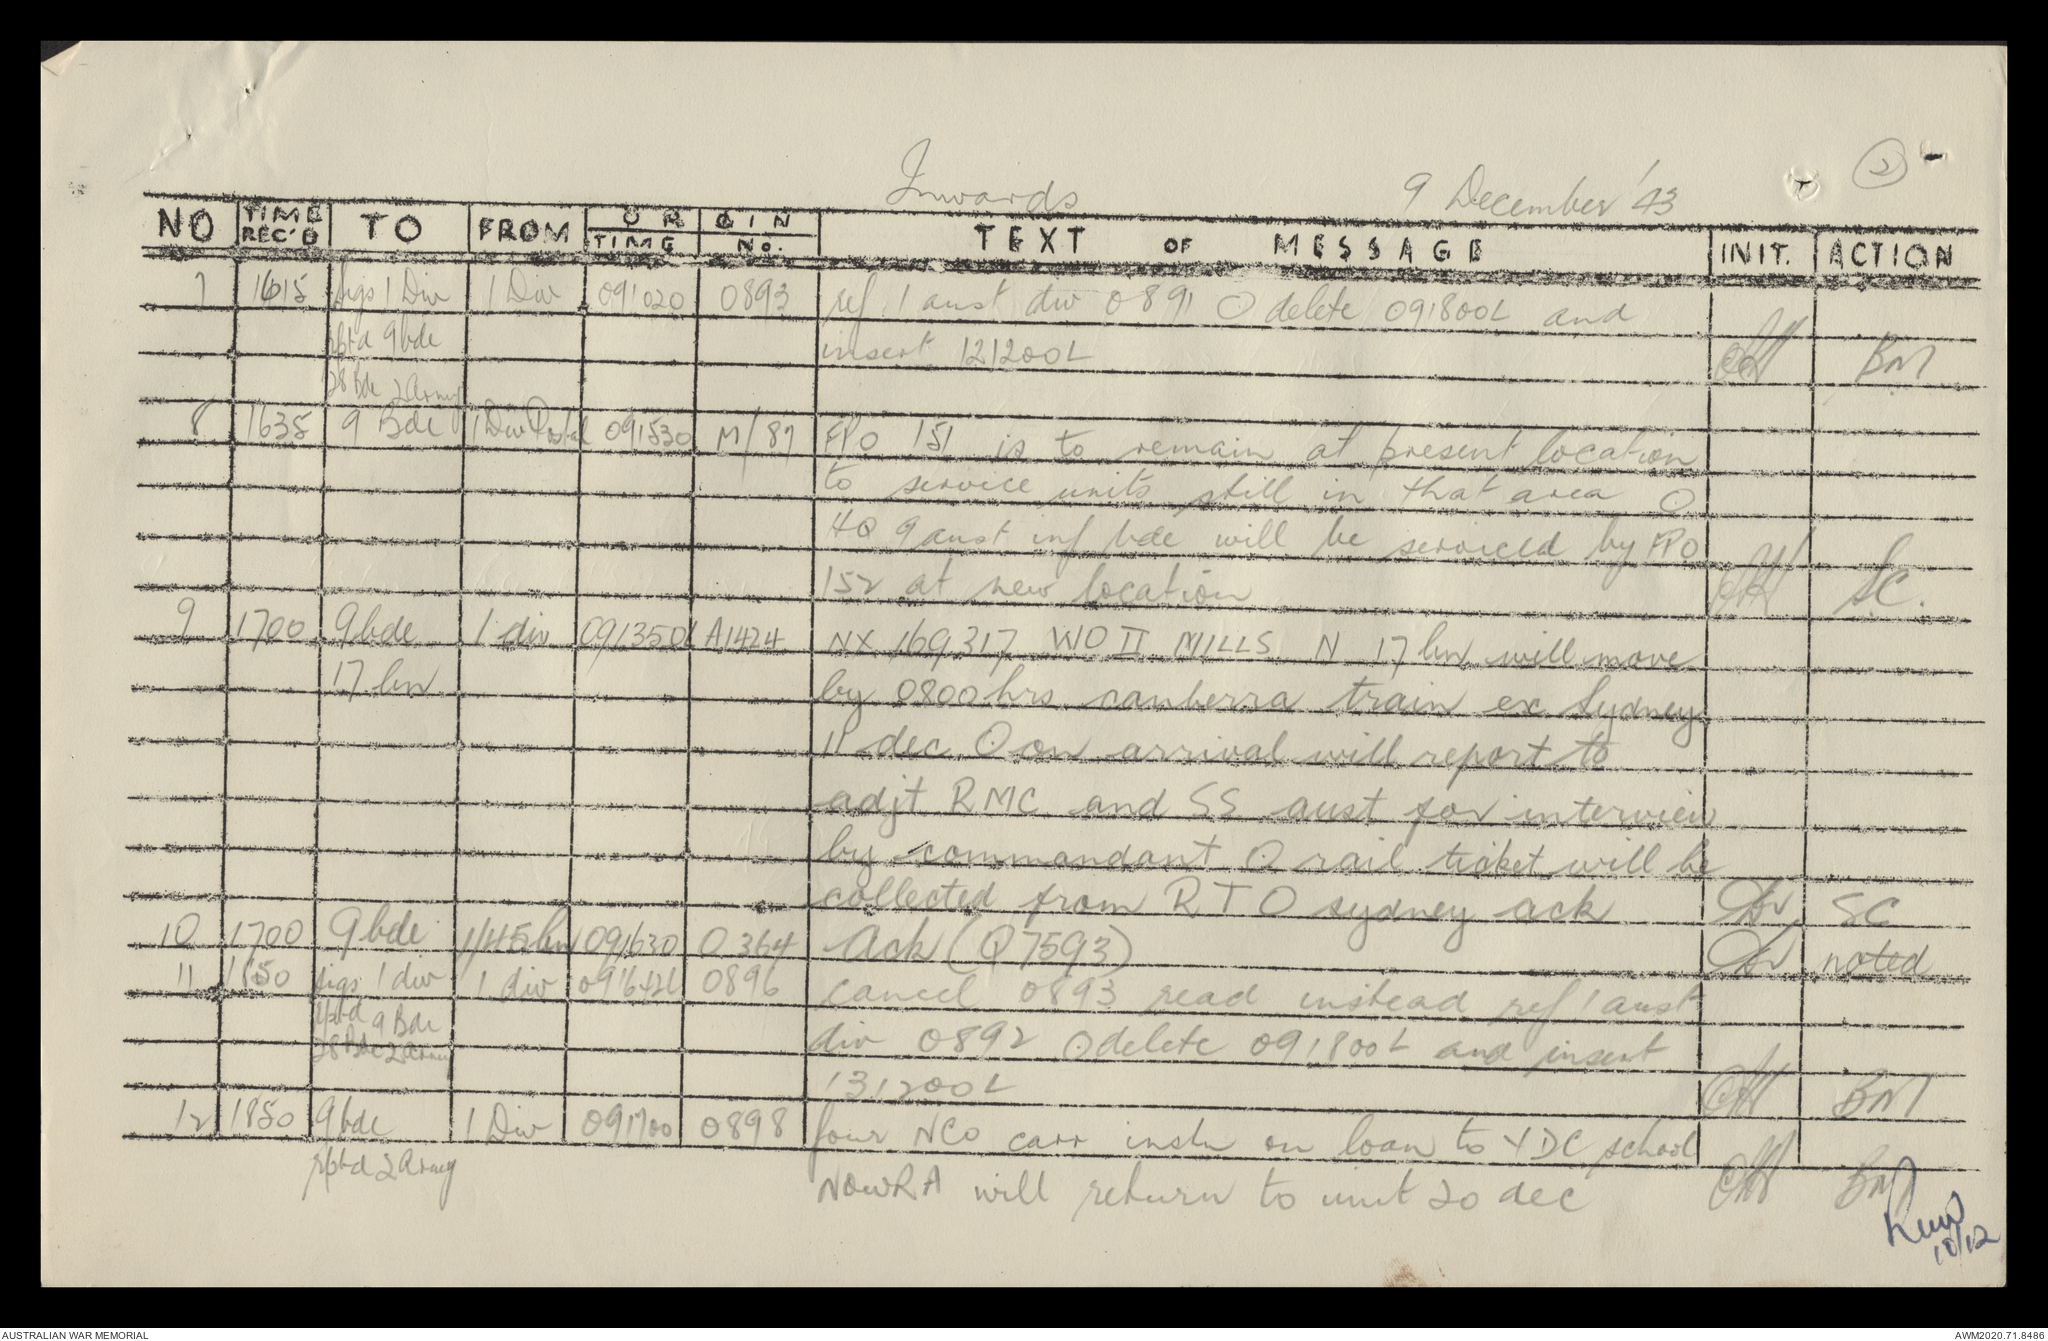 Inwards 9 December '43 2
NO TIME REC'D TO FROM ORIGIN TIME No. TEXT OF MESSAGE INIT. ACTION
7 1615 sigs 1 Div 1 Div 091020 0893 ref 1 aust div 0891 O delete 091800L and
rptd 9 bde insert 121200L BM
28 Bde 2 Army
8 1635 9 Bde 1 Div Postal 091530 M/87 FPO 151 is to remain at present location
to service units still in that area O
HQ 9 aust inf bde will be serviced by FPO
152 at new location SC.
9 1700 9 bde 1 div 091350L A1424 NX 169317 WO II MILLS N 17 bn will move
17 bn by 0800 hrs canberra train ex Sydney
11 dec O on arrival will report to
adjt RMC and SS aust for interview
by commandant O rail ticket will be
collected from R T O sydney ack SC
10 1700 9 bde 1/45 bn 091630 O 364 Ack (Q 7593) noted
11 1850 sigs 1 div 1 div 091642L 0896 cancel 0893 read instead ref 1 aust
rptd 9 Bde div 0892 O delete 091800L and insert
28 Bde 2 army
131200L BM
12 1850 9 bde 1 Div 091700 0898 four NCO carr instn on loan to VDC school
rptd 2 Army NOWRA will return to unit 20 dec BM
10/12
AUSTRALIAN WAR MEMORIAL AWM2020.71.8486